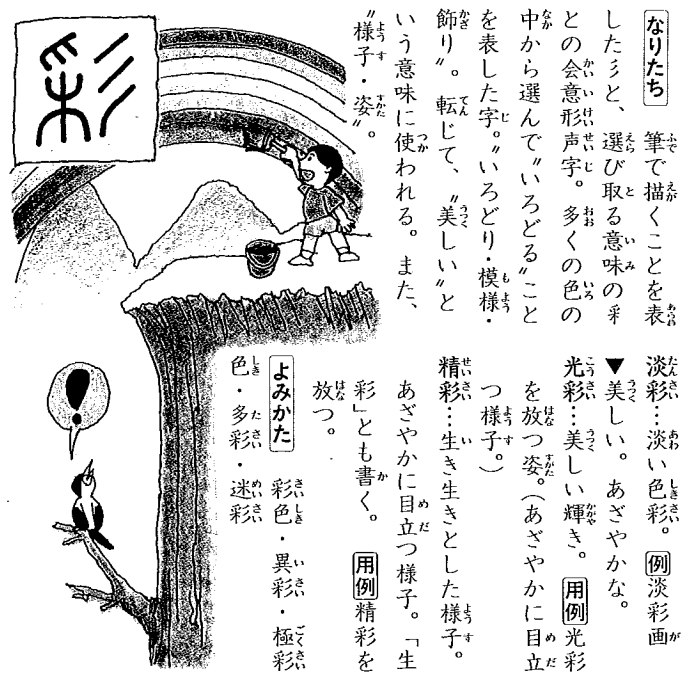 彩
なりたち 筆で描くことを表
した彡と、選び取る意味の采
との会意形声字。多くの色の
中から選んで〝いろどる〟こと
を表した字。〝いろどり・模様・
飾り〟。転じて、〝美しい〟と
いう意味に使われる。また、
〝様子・姿〟。
淡彩…淡い色彩。 例 淡彩画
▼美しい。あざやかな。
光彩…美しい輝き。 用例 光彩
を放つ姿。(あざやかに目立
つ様子。)
精彩…生き生きとした様子。
あざやかに目立つ様子。「生
彩」とも書く。 用例 精彩を
放つ。
よみかた 彩色・異彩・極彩
色・多彩・迷彩